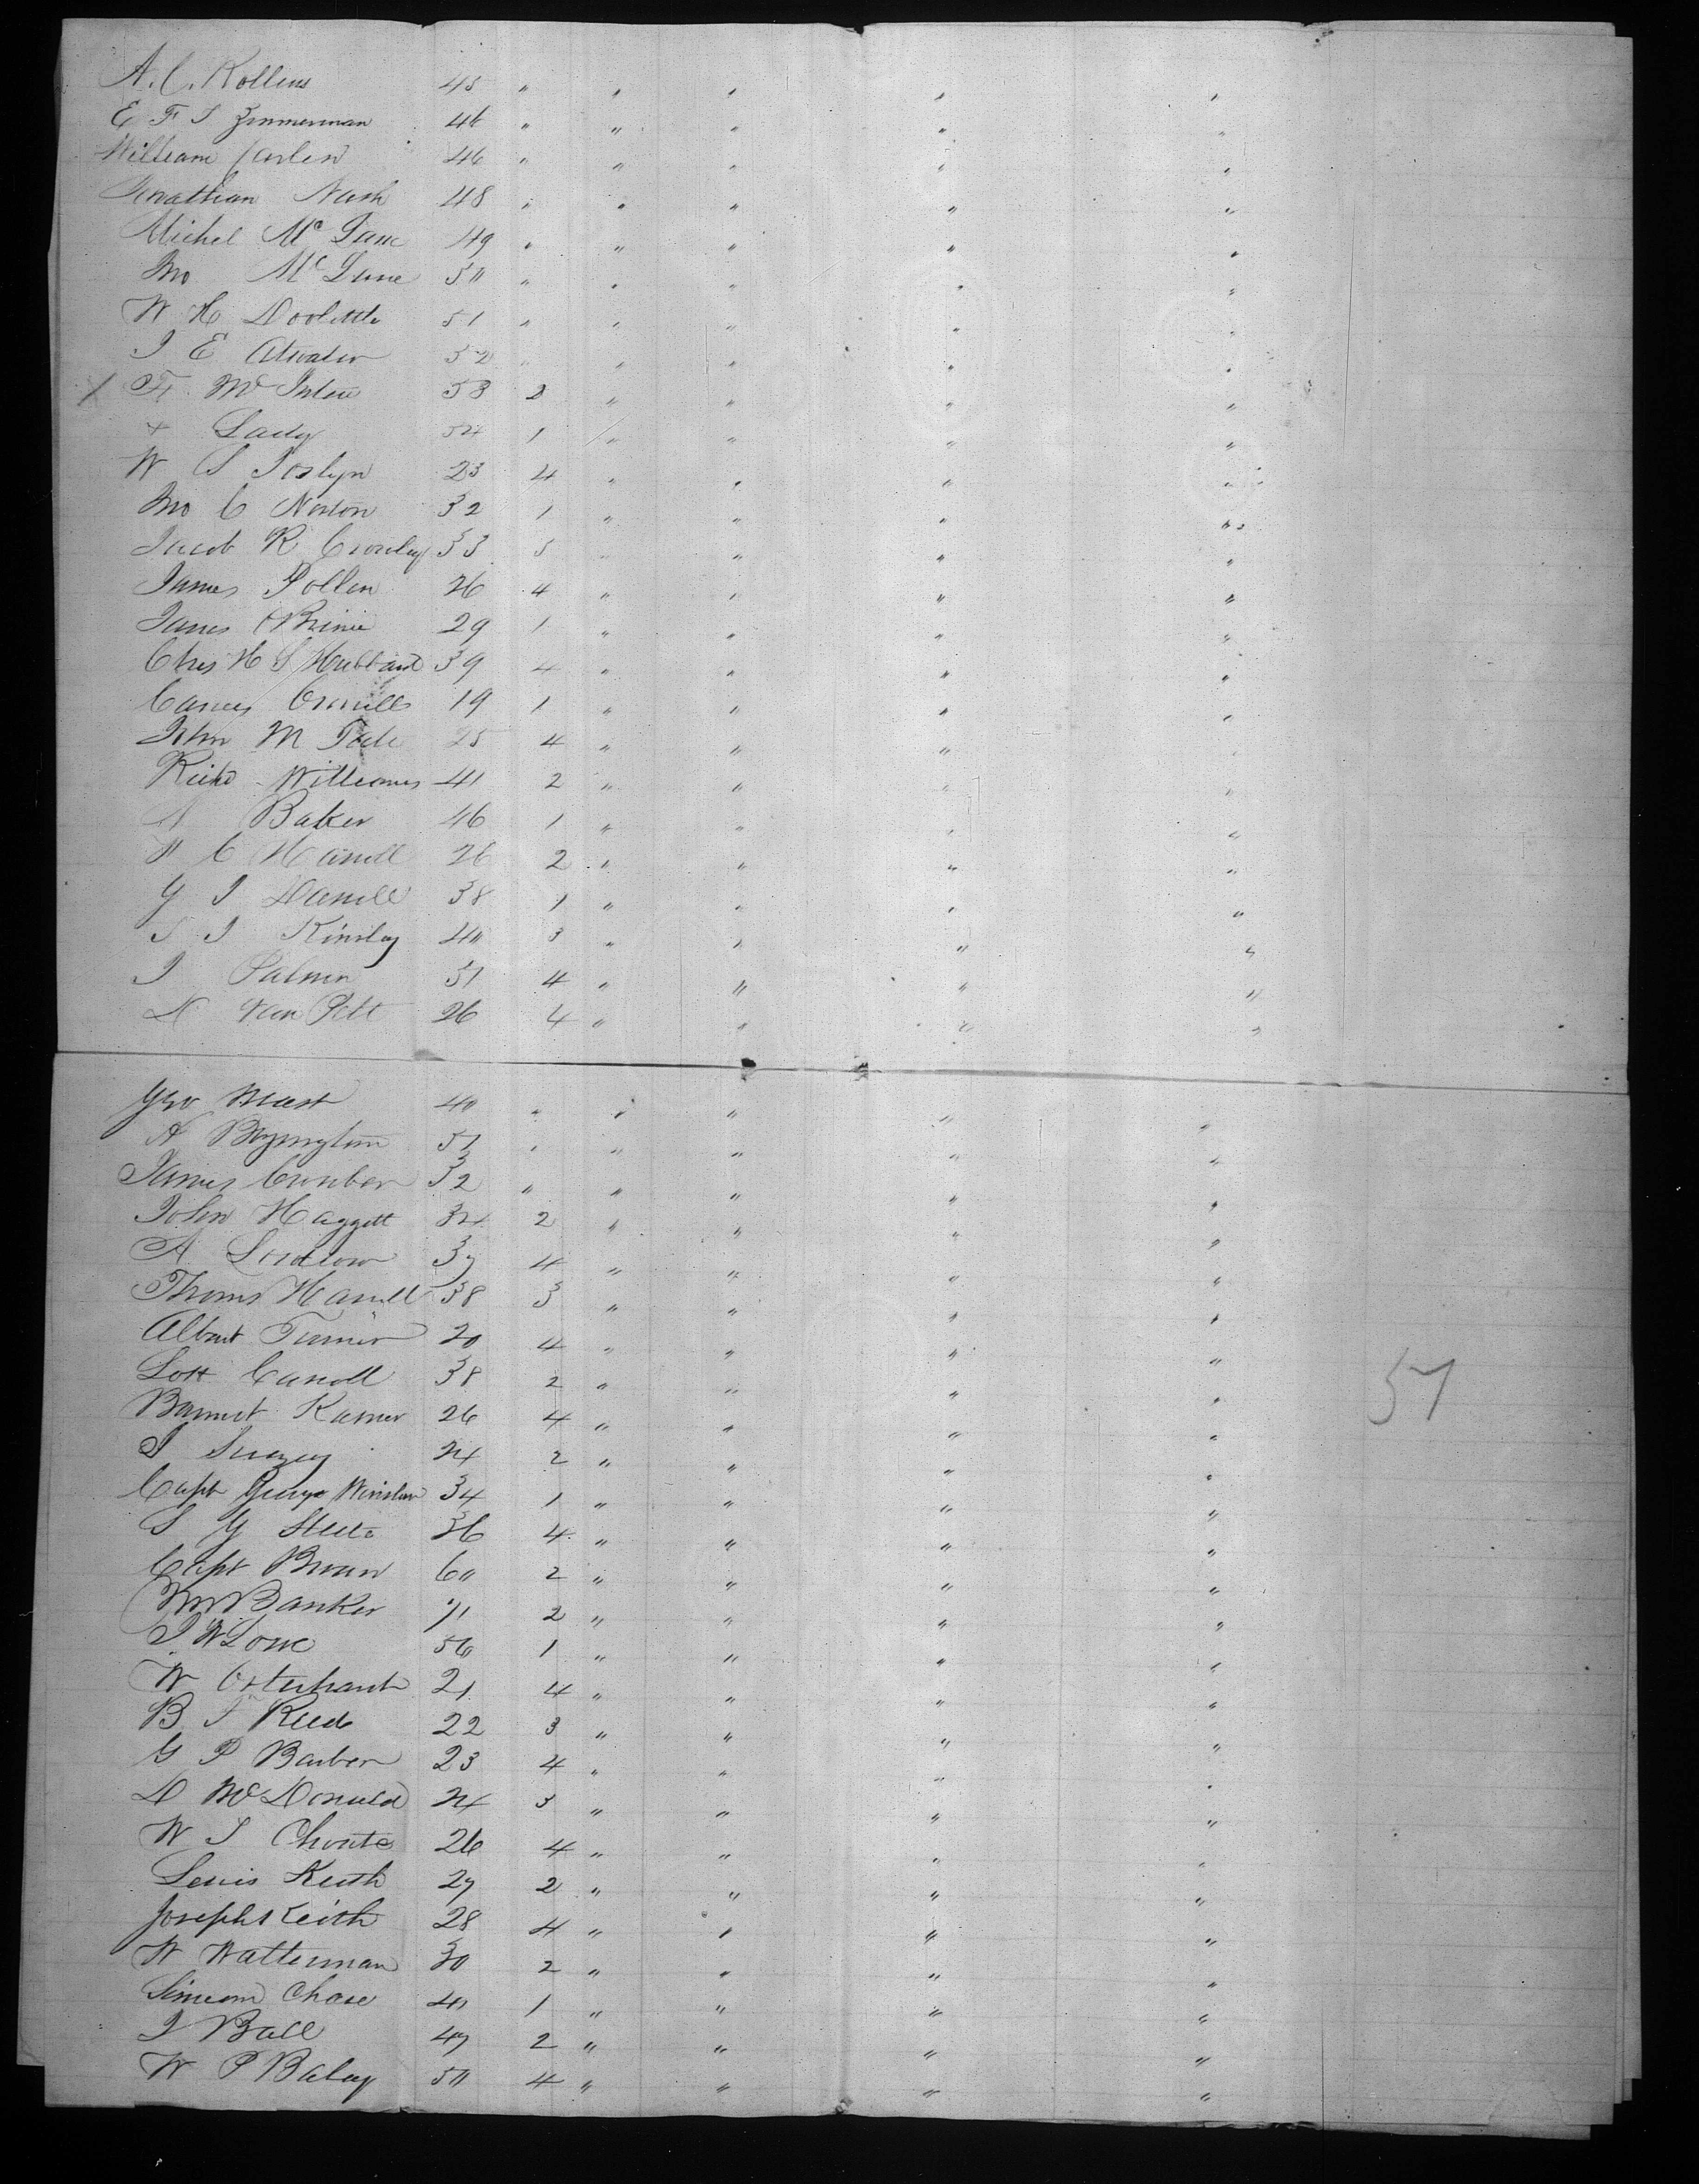 A. C. Rollins 45 " " " " "
E F S Zimmerman 46 " " " " "
William Carlen 46 " " " " "
Jonathan Nash 48 " " " " "
Michel Mc Lane 49 " " " " "
Jno Mc Lane 50 " " " " "
W H Doolittle 51 " " " " "
J E Atwater 52 " " " " "
F. Mc 53 2 " " " "
+ Lady 54 1 " " " "
W S Joslyn 23 4 " " " "
Jno C Norton 32 1 " " " "
Jacob R Crowley 33 5 " " " "
James Pollen 26 4 " " " "
James 29 1 " " " "
Chs H S Hubbard 39 4 " " " "
19 1 " " " "
John M 25 4 " " " "
Richd Williams 41 2 " " " "
Baker 46 1 " " " "
C Harrell 26 2 " " " "
G J Darrell 38 1 " " " "
S J Kinsley 40 3 " " " "
J Palmer 31 4 " " " "
D Van Pelt 26 4 " " " "
Geo Mast 40 " " " " "
A Byington 51 " " " " "
James 32 " " " " "
John Haggett 34 2 " " " "
A Ludlow 37 4 " " " "
Thomas Harrell 38 3 " " " "
Albert Turner 20 4 " " " "
Lott Carroll 38 2 " " " "
Barnet Karner 26 4 " " " "
S Swezey 24 2 " " " "
Capt George Winslow 34 1 " " " "
S G Steele 36 4 " " " "
Capt Brown 60 2 " " " "
Wm Banker 71 2 " " " "
J W Lowe 50 1 " " " "
W Osterhaut 21 4 " " " "
B F Reed 22 3 " " " "
G P Barber 23 4 " " " "
D Mc Donald 24 3 " " " "
W S Choate 26 4 " " " "
Lewis Keith 27 2 " " " "
Joseph Keith 28 4 " " " "
W Watterman 30 2 " " " "
Simeon Chase 40 1 " " " "
J Ball 47 2 " " " "
W P Baley 50 4 " " " "
57